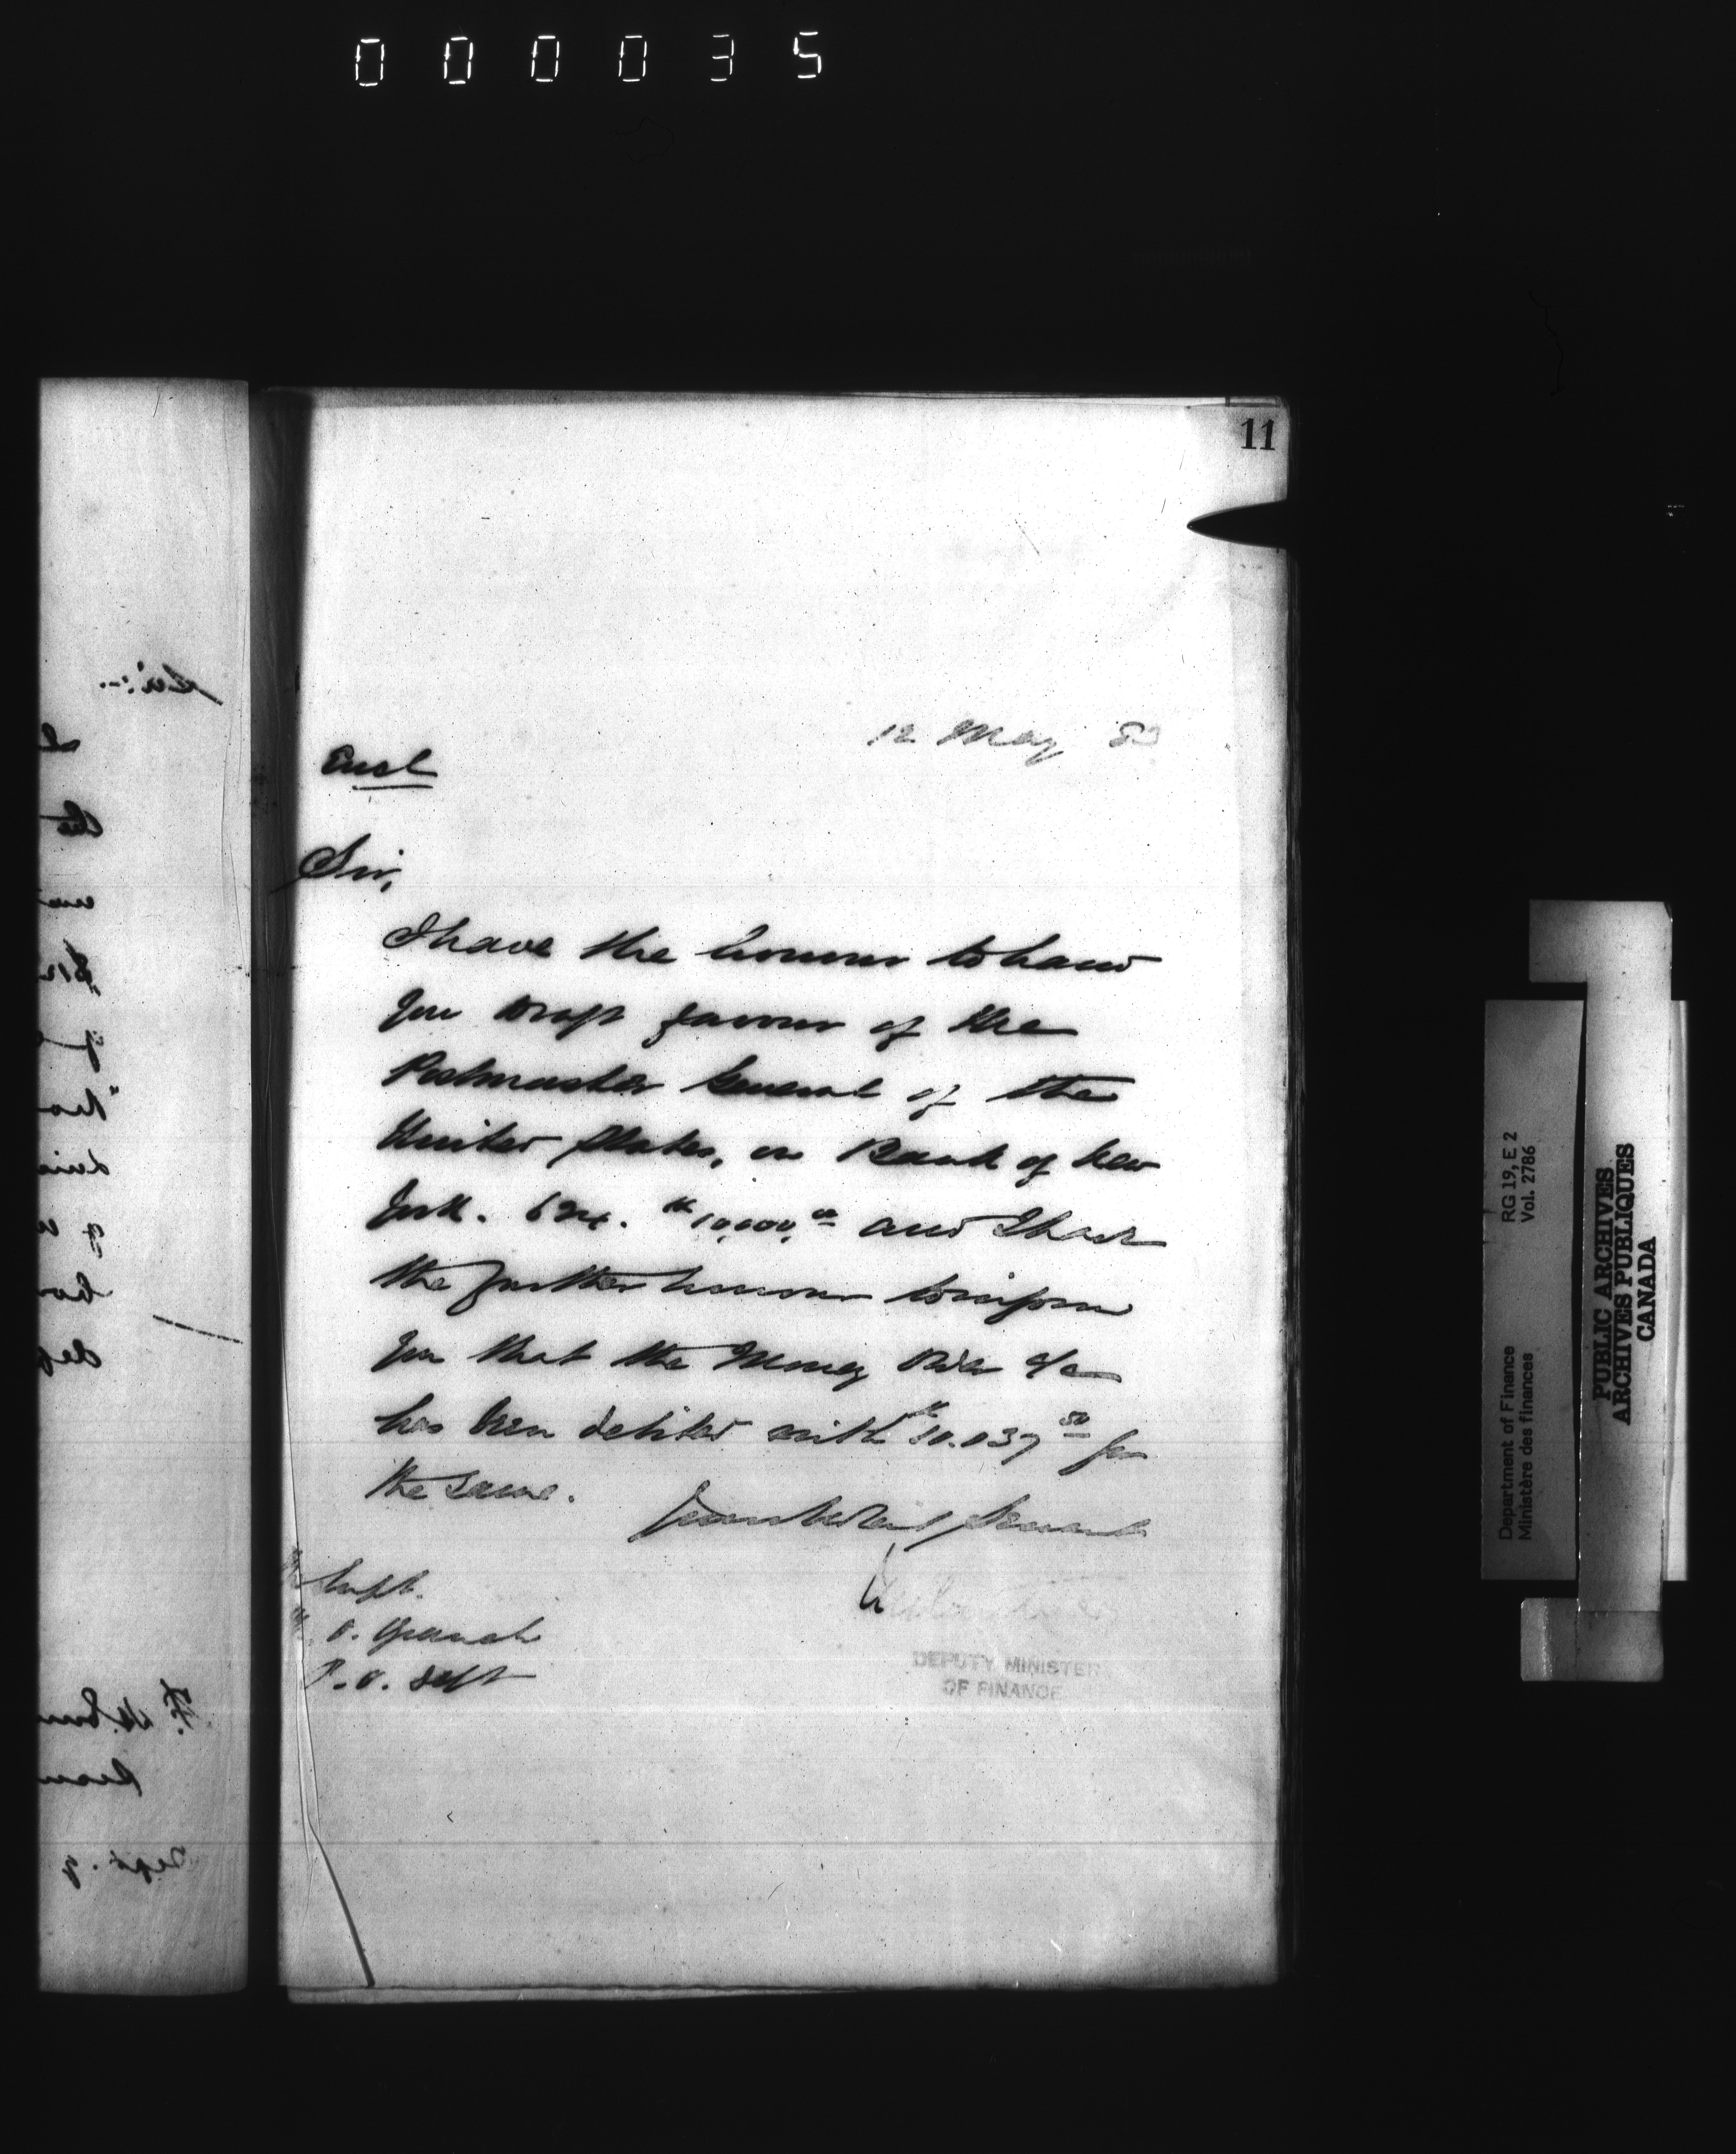 000035
11
12 May 83
Encl
Sir,
I have the honour to hand
you Draft favour of the
Postmaster General of the
United States, on Bank of New
York. 624. $10,000.00 and I have
the further honour to inform
you that the Money Order a/c
has been debited with $10.037 50 for
the same.
Your obedient Servant
Supt.
M. O. Branch
P. O. Dept
DEPUTY MINISTER
OF FINANCE
Department of Finance RG 19, E 2
Ministère des finances Vol. 2786
PUBLIC ARCHIVES
ARCHIVES PUBLIQUES
CANADA